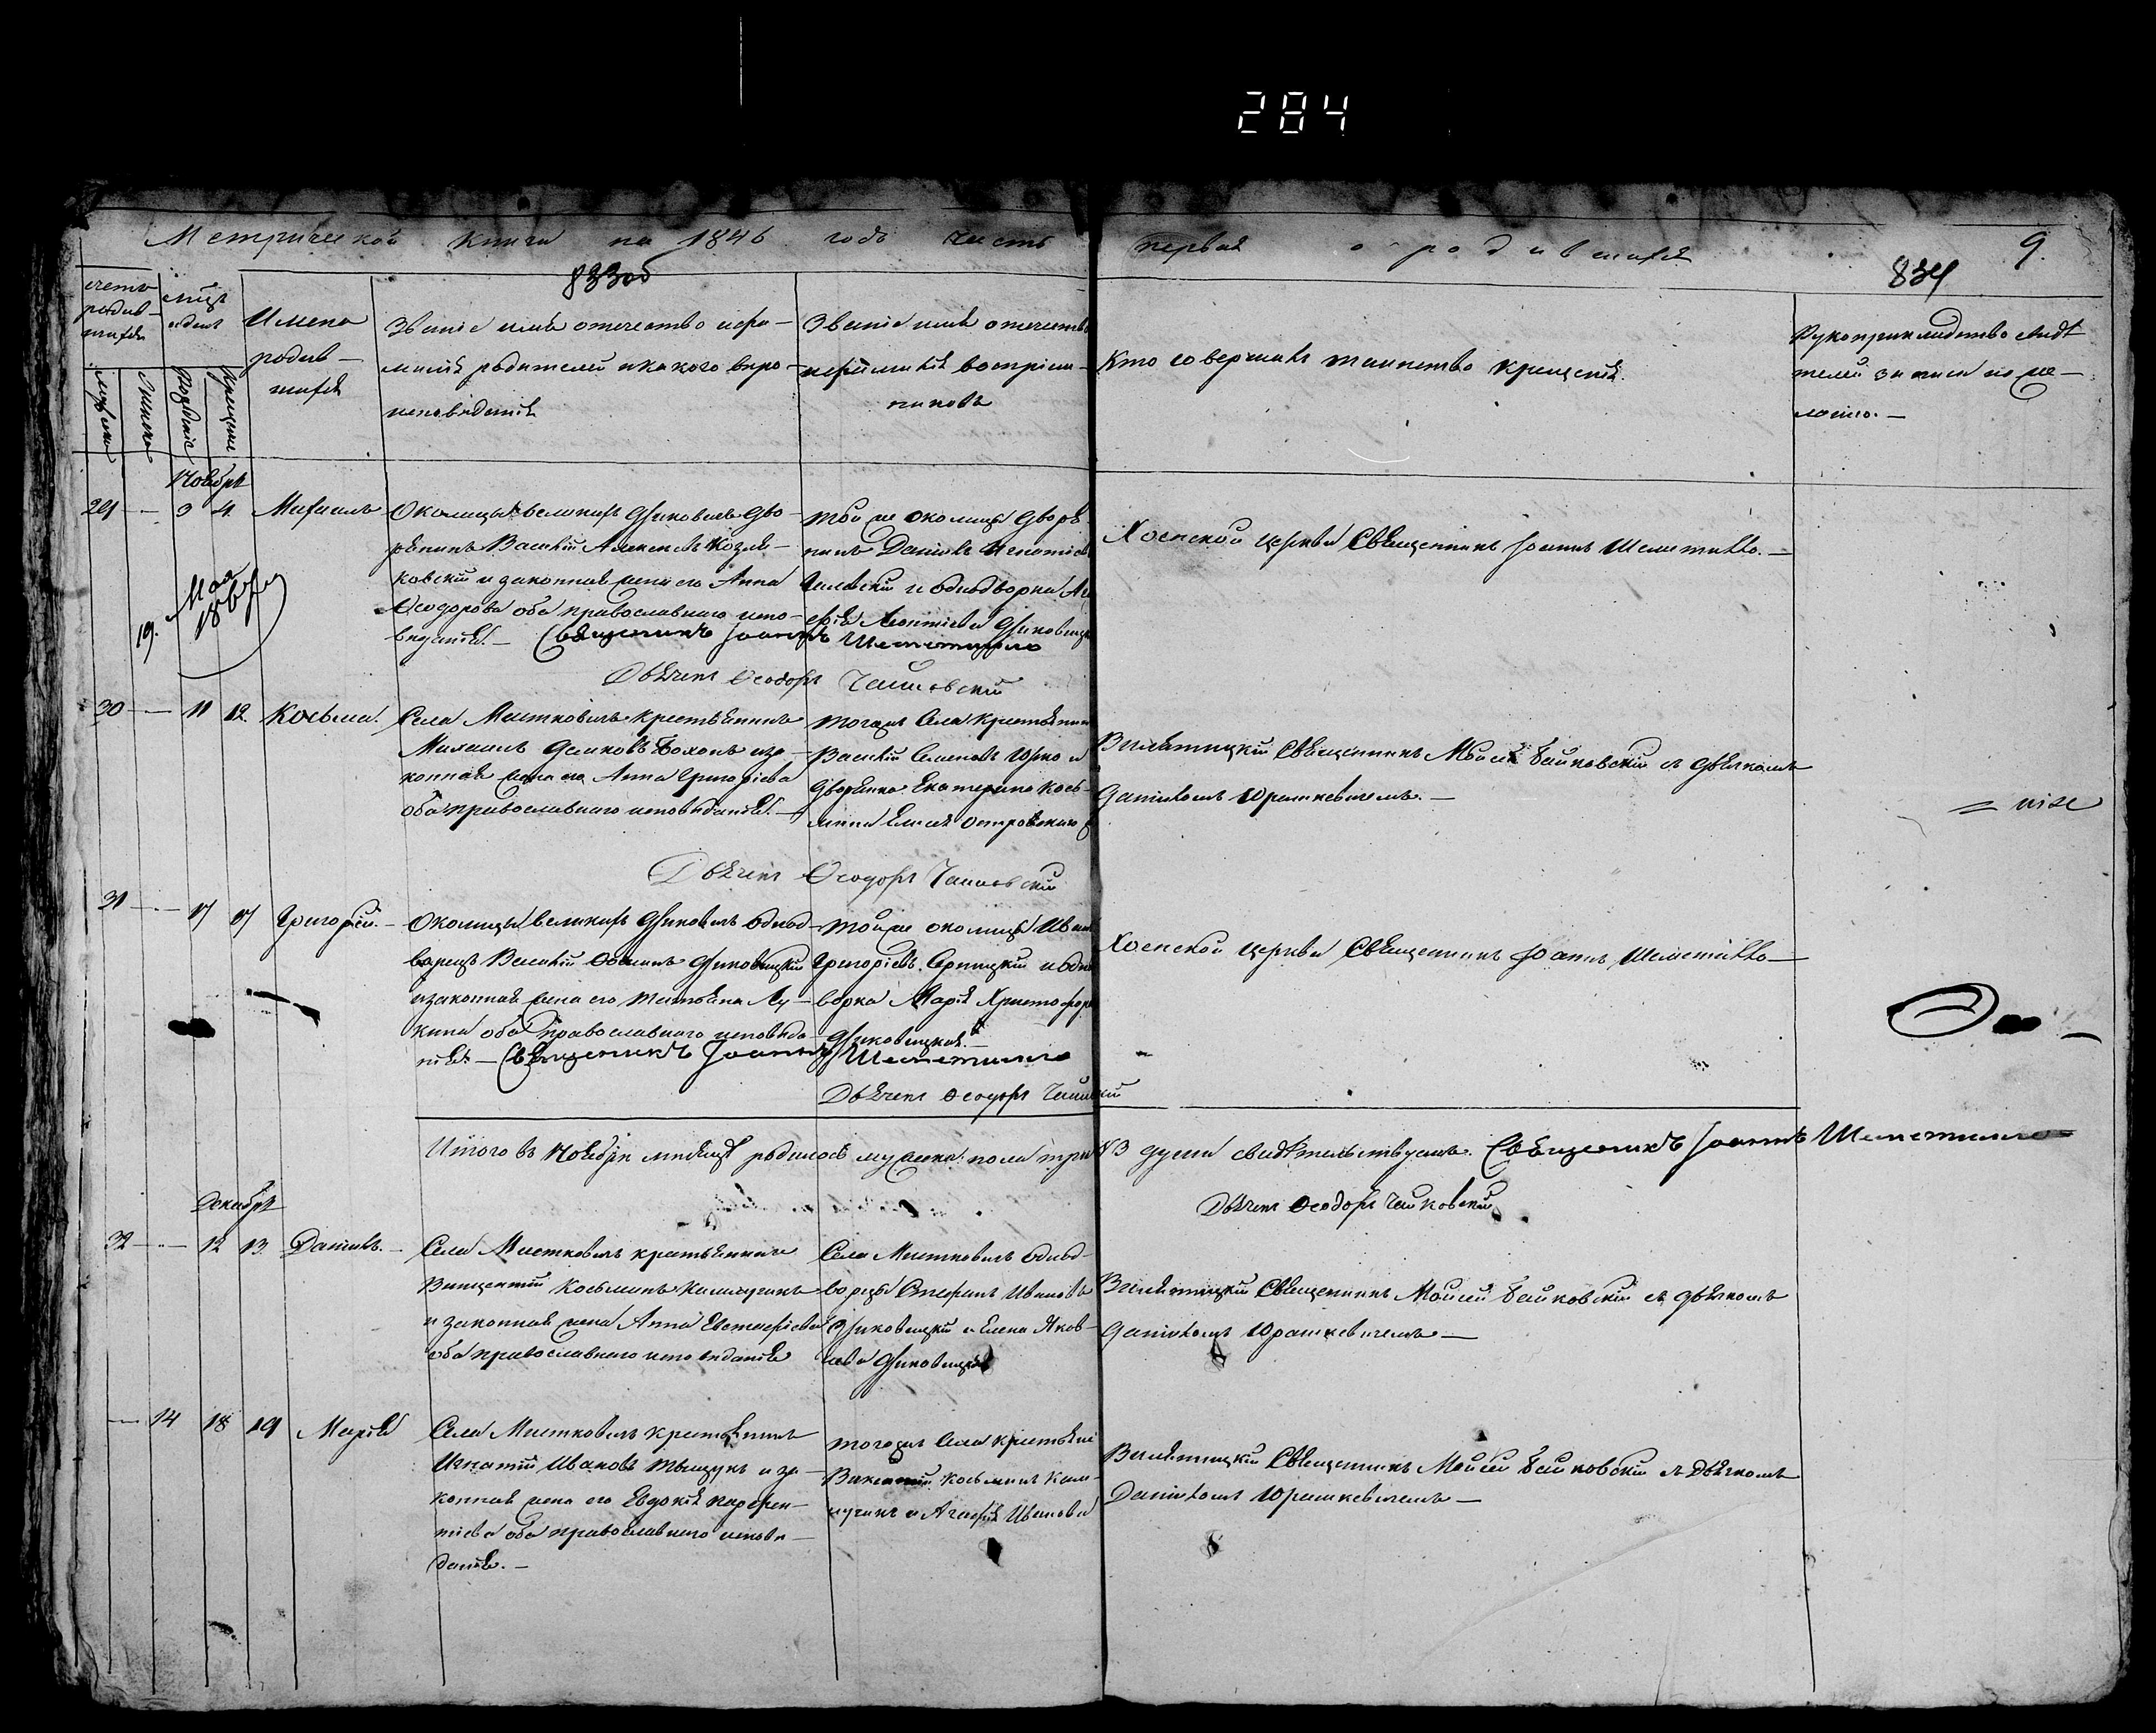 284
Метрической книги на 1846 годъ часть первая о родившихся 9.
833об 834
счетъ родив-шихся
мужеска
женска
мѣсяцъ и день
Рожденіе
Крещеніе
Имена
родив-
шихся
Званіе имя отечество и фа-
милія родителей и какого вѣро-
исповѣданія
Званіе имя отечество
и фамилія воспріем-
никовъ
Кто совершалъ таинство крещенія.
Рукоприкладство свидѣ
телей записи по же-
ланію. —
Ноябрь
29 — 3 4 Михаилъ
Околицы Великихъ Диковичь дво-
рянинъ Василій Алексѣевъ Козля-
ковскій и законная жена его Анна
Ѳеодорова оба православнаго испо-
веданія. — Священникъ Іоаннъ Шеметилло
той же околицы дворя
нинъ Даніилъ Игнатіев
и однодворка
Леонтіева Диковицк
Хоенской церкви Священникъ Іоаннъ Шеметилло. —
19. Мая
186
Дьячекъ Ѳеодоръ Чайковскій
30 — 11 12 Косьма.
Села Мистковичь крестьянинъ
Михаилъ и за-
конная жена его Анна Григоріева
оба православнаго исповѣданія. —
тогожъ села крестьянин
Василій Семеновъ Юрко и
дворянка Екатерина Кось-
мина Островскаго
Вилятицкій Священникъ Моисей Байковскій съ дьячкомъ
Даніиломъ Юрашкевичемъ. —
Дьячекъ Ѳеодоръ Чайковскій
31 — 17 17 Григорій. —
Околицы Великихъ Диковичь однод-
ворецъ Василій Диковицкій
и законная жена его Татьяна Лу-
кина оба православнаго исповѣда
нія. — Священникъ Іоаннъ Шеметилло
той же околицы Иван
Григоріевъ Серницкій и одно
ворка Марія Христофор
Диковицкая. —
Хоенской церкви Священникъ Іоаннъ Шеметилло —
Дьячекъ Ѳеодоръ Чайковскій
Итого въ Ноябрѣ мѣсяцѣ родилось мужеска пола три №3 души свидѣтельствуемъ. Священникъ Іоаннъ Шеметилло
Дьячекъ Ѳеодоръ Чайковскій
Декабрь
32 — 12 13 Даніилъ. —
Села Мистковичь крестьянинъ
Викентій Косьминъ
и законная жена Анна Евстафіева
оба православнаго исповеданія
Села Мистковичь однод-
ворцы Стефанъ Ивановъ
Диковицкій и Елена Яков-
лева Диковицкая
Вилятицкій Священникъ Моисей Байковскій съ дьячкомъ
Даніиломъ Юрашкевичемъ —
— 14 18 19 Марія
Села Мистковичь крестьянинъ
Игнатій Ивановъ и за-
конная жена его Евдокія Парфен-
тіева оба православнаго испове-
данія. —
тогожъ села крестьяне
Викентій Косьминъ
и Агафія Иванова
Вилятицкій Священникъ Моисей Байковскій съ Дьячкомъ
Даніиломъ Юрашкевичемъ —